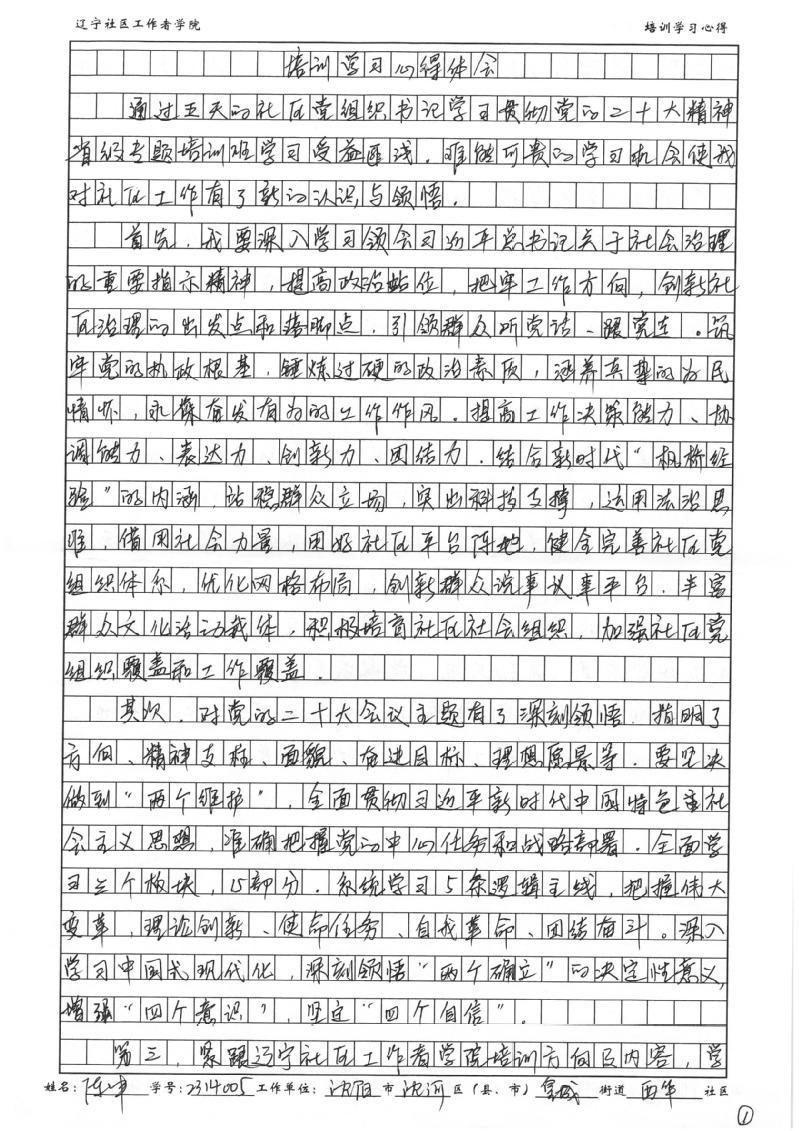 辽宁社区工作者学院
培训学习心得
培训学习心得体会
通过五天的社区党组织书记学习贯彻党的二十大精神
省级专题培训班学习受益匪浅。难能可贵的学习机会使我
对社区工作有了新的认识与领悟。
首先，我要深入学习领会习近平总书记关于社会治理
的重要指示精神，提高政治站位，把牢工作方向，创新社
区治理的出发点和落脚点，引领群众听党话、跟党走。筑
牢党的执政根基，锤炼过硬的政治素质，涵养真挚的为民
情怀，永葆奋发有为的工作作风。提高工作决策能力、协
调能力、表达力、创新力、团结力。结合新时代“枫桥经
验”的内涵，站稳群众立场，突出科技支撑，运用法治思
维，借用社会力量，用好社区平台阵地，健全完善社区党
组织体系，优化网格布局，创新群众说事议事平台。丰富
群众文化活动载体，积极培育社区社会组织，加强社区党
组织覆盖和工作覆盖。
其次，对党的二十大会议主题有了深刻领悟。指明了
方向、精神支柱、面貌、奋进目标、理想愿景等。要坚决
做到“两个维护”，全面贯彻习近平新时代中国特色主社
会主义思想，准确把握党的中心任务和战略部署。全面学
习三个板块，15部分。系统学习5条逻辑主线，把握伟大
变革，理论创新、使命任务、自我革命、团结奋斗。深入
学习中国式现代化，深刻领悟“两个确立”的决定性意义，
增强“四个意识”，坚定“四个自信”。
第三，紧跟辽宁社区工作者学院培训方向及内容，学
姓名： 学号:2314005 工作单位：沈阳市沈河区（县、市）皇城街道 西华 社区
①